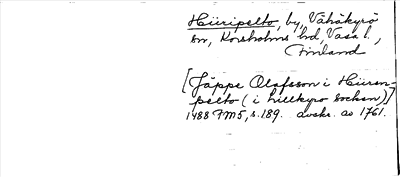 Hiiripelto, by, Vähäkyrö
sn, Korsholms hd, Vasa l.,
Finland
[Jäppe Olafsson i Hiiren-
pelto (i lillkyro socken)]
1488 FM5, s.189. avskr. av 1761.